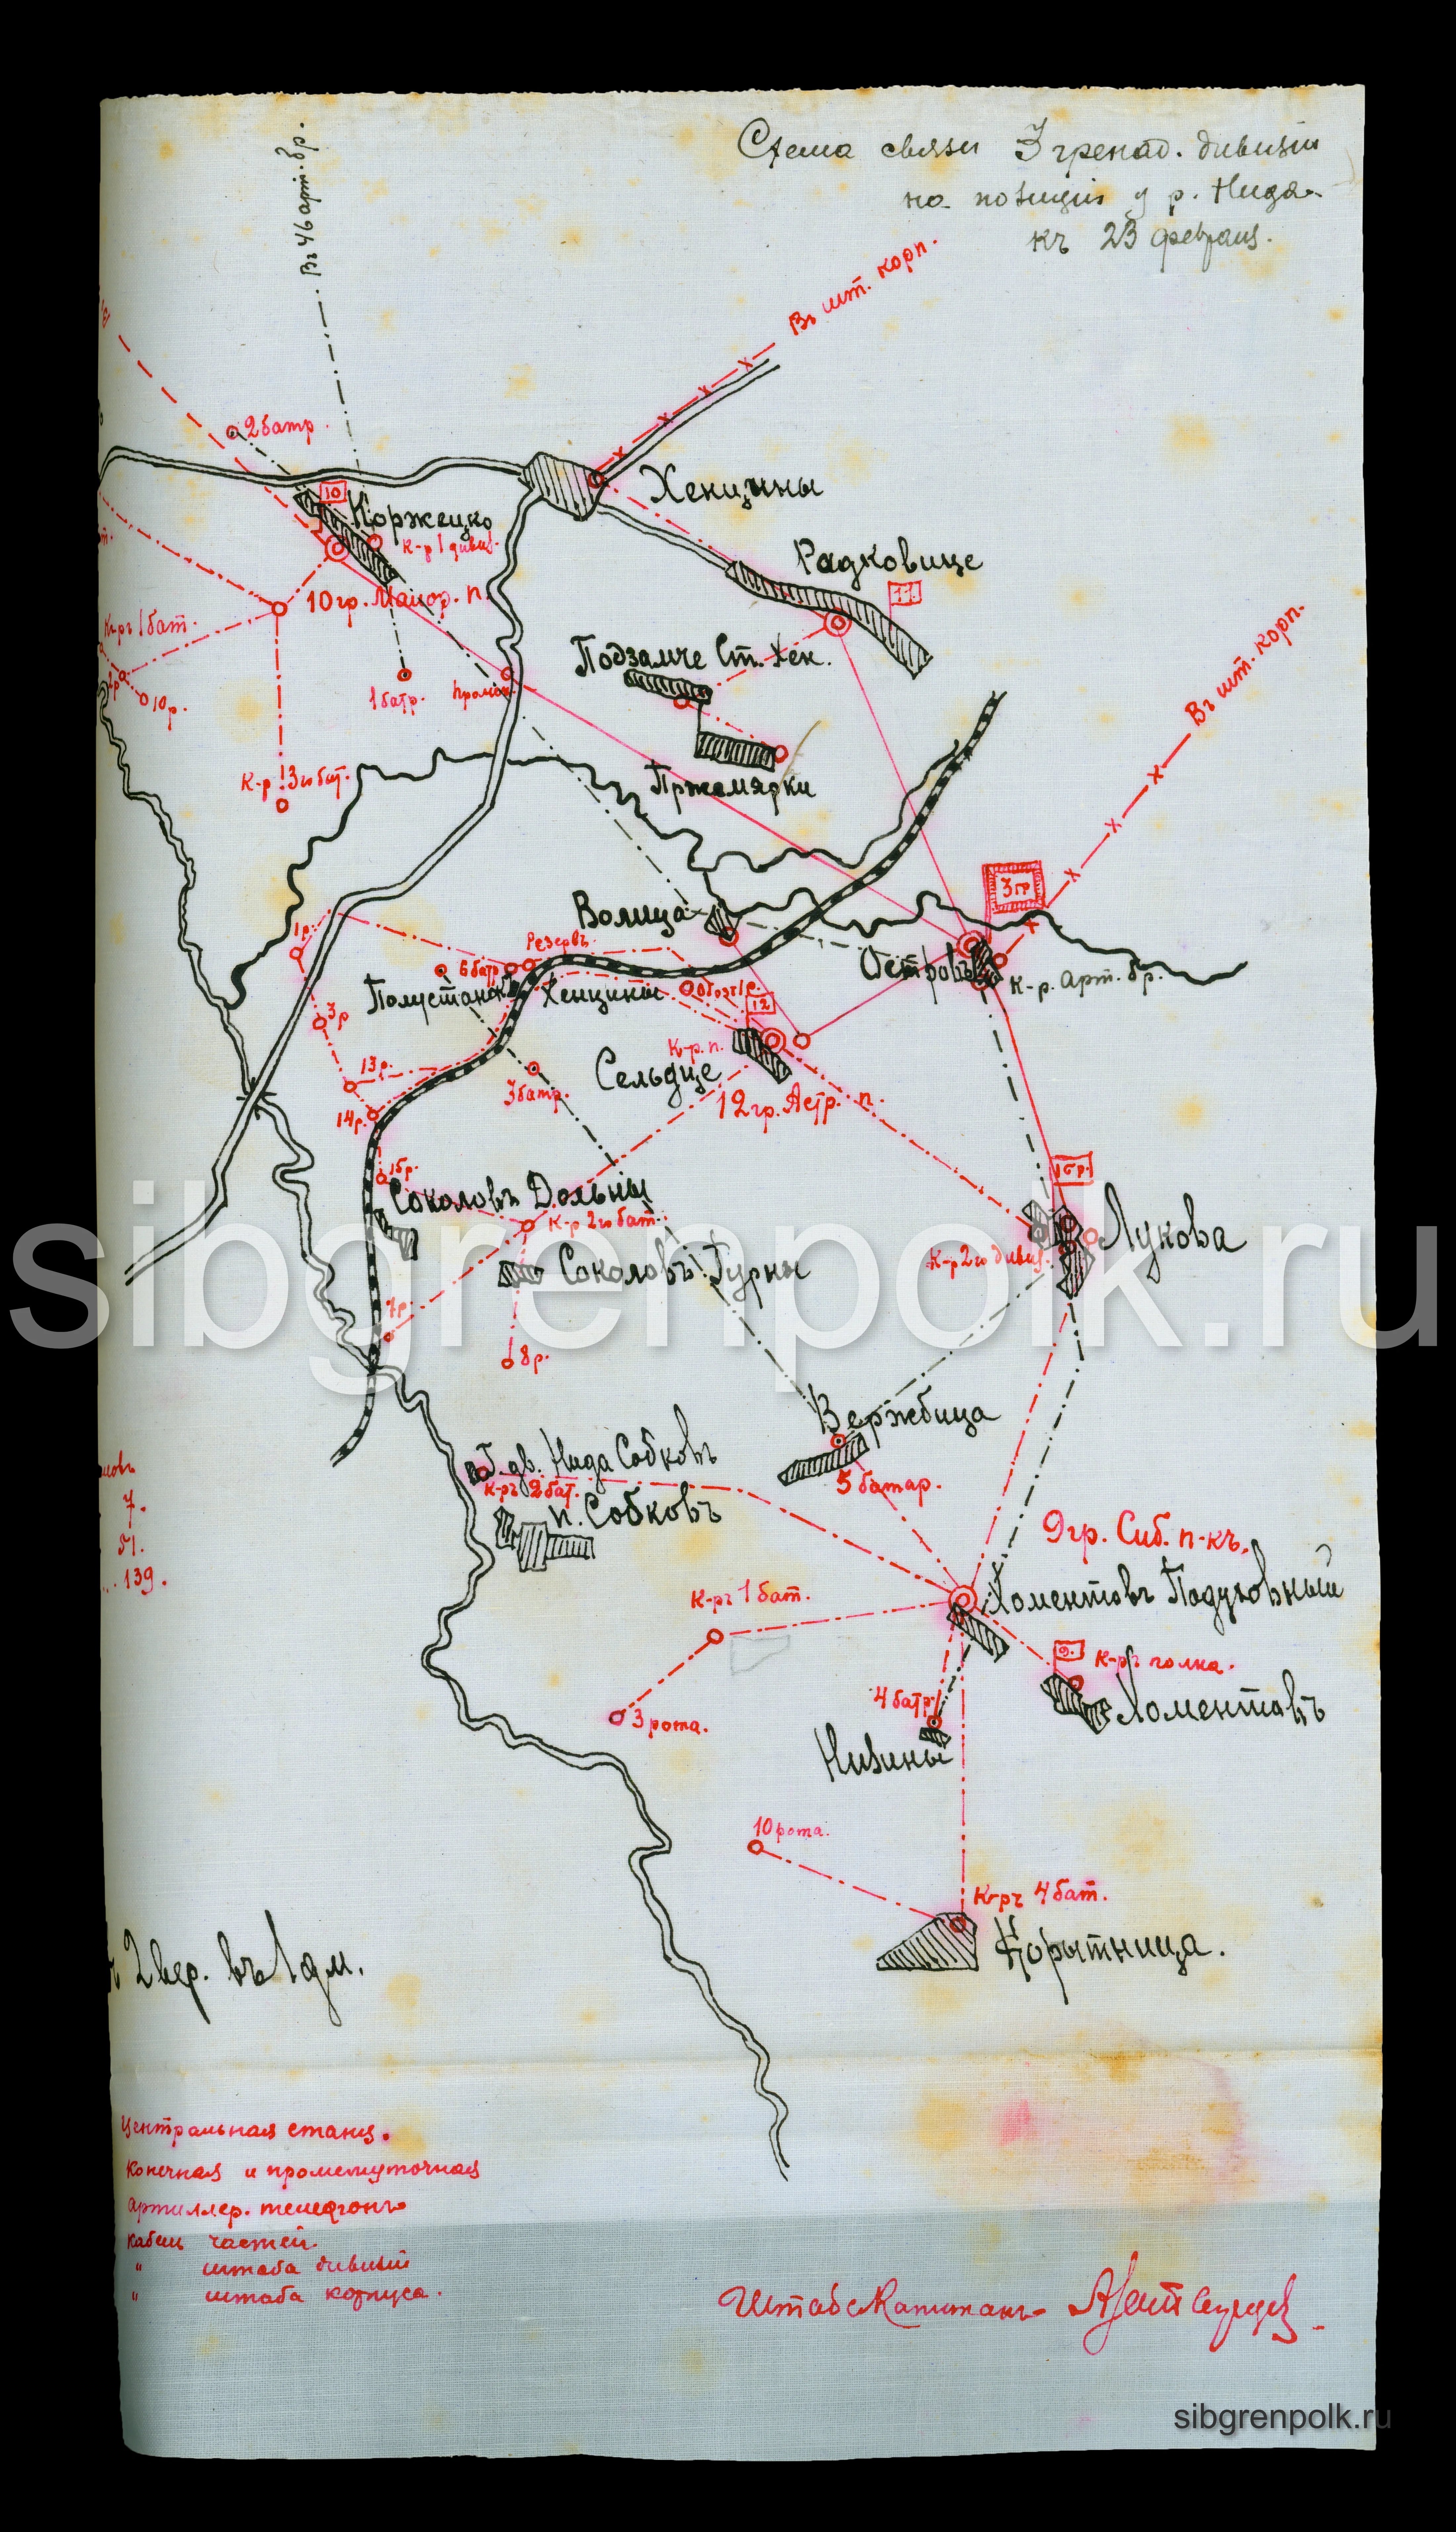 Схема связи 3 гренад. дивизіи
на позиціи у р. Нида
къ 23 февраля.
Въ 46 арт. бр.
Въ шт. корп.
2 батр.
Хенцины
10
Коржецко
к-р 1 дивиз.
Радковице
11
10 гр. Малор. п.
К-ръ 1 бат.
Подзамче Ст. Хен.
10 р.
1 батр.
пром.
Въ шт. корп.
К-р 3го бат.
Пржемярки
3 гр
Волица
1 р.
Резервъ
6 батр.
Островъ
К-р. арт. бр.
Полустанокъ Хенцины
12
3 р
К-р. п.
Сельдце
13 р.
3 батр.
12 гр. Астр. п.
14 р.
15 р.
Соколовъ Дольны
К-р 2го бат.
Лукова
К-р 2го дивиз.
Соколовъ Гурны
sibgrenpolk.ru
7 р.
8 р.
Вержбица
Г. дв. Нида Собковъ
5 батар.
К-ръ 2 бат.
п. Собковъ
7.
51.
139.
9 гр. Сиб. п-къ.
Хоментовъ
К-ръ 1 бат.
9.
К-ръ полка.
4 батр.
Хоментовъ
3 рота.
Низины
10 рота.
К-ръ 4 бат.
Корытница.
2 вер. въ 1 дм.
Центральная станц.
Конечная и промежуточная
артиллер. телефонъ
кабель частей.
" штаба дивизіи
" штаба корпуса.
Штабс-Капитанъ
sibgrenpolk.ru